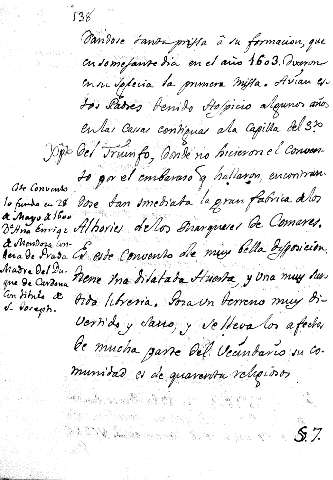 138
Dandose tanta prissa â su formacion, que
en somejante dia en el año 1603. Dixeron
en su Yglesia la primera missa. Avian es-
tos Padres tenido Hospicio algunos años
en las casas contiguas a la Capilla del
Del Triunfo, donde no hicieron el conven-
to por el embaraso q hallaron, encontran-
dose tan imediata la gran fabrica de los
Alhories de los Marqueses de Comares.
Es este convento de muy bella disposicion.
tiene una dilatada Huerta, y una muy sur-
tida libreria. Goza un terreno muy di-
vertido y sano, y se lleva los afectos
de mucha parte del Vecindario su co-
munidad es de quarenta religiosos.
§. 7.
Este Convento
lo fundo en 28
de Mayo de 1600
Dª Ana Enrriqz
de Mendoza con-
desa de Prada
Madre del Du-
que de Cardona
con titulo de
S. Joseph.